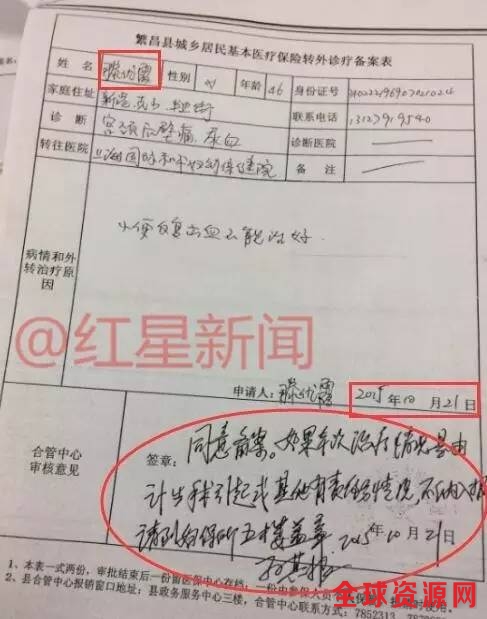 繁昌县城乡居民基本医疗保险转外诊疗备案表
姓名 性别 女 年龄 46 身份证号
家庭住址 联系电话
诊断 宫颈后壁痛 尿血 诊断医院
转往医院 上海国际和平妇幼保健院 备注
小便反复出血不能治好.
病情和外
转治疗原
因
@红星新闻
申请人: 2015年10月21日
合管中心
审核意见
签章: 同意备案。如果本次治疗情况是由
计生手术引起或其他有责任的情况,不纳入报
2015年10月21日
1、本表一式两份,审批结束后一份留医保中心存档,一份由参保人员
2、县合管中心报销窗口地址:县政务服务中心三楼,合管中心联系方式:7852313
全球资源网